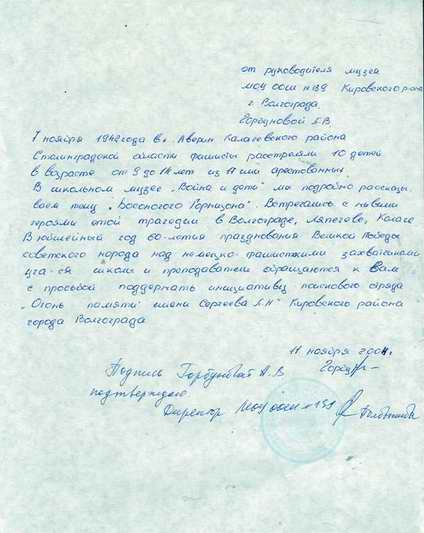 от руководителя музея
МОУ ООШ №139 Кировского р-она
г. Волгограда
7 ноября 1942 года в х. Аверин Калачевского района
Сталинградской области фашисты расстреляли 10 детей
в возрасте от 9 до 14 лет из 17 ими арестованных
В школьном музее „Война и дети" мы подробно рассказы
ваем тему „Босоногого Гарнизона". Встречались с живыми
героями этой трагедии в Волгограде, Ляпичеве, Калаче
В юбилейный год 60-летия празднования Великой Победы
советского народа над немецко-фашистскими захватчиками
уча-ся школы и преподаватели обращаются к Вам
с просьбой поддержать инициативу поискового отряда
„Огонь памяти" имени Сергеева А.Н" Кировского района
города Волгограда
11 ноября 2004г.
Подпись А.В
подтверждаю
Директор МОУ ООШ №139